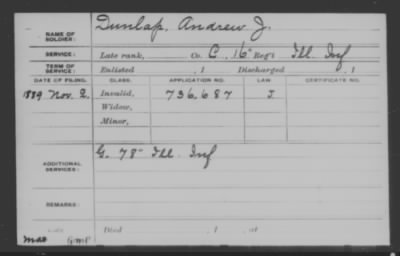 NAME OF SOLDIER: Dunlap, Andrew J.
SERVICE: Late rank, Co. C, 16" Reg't Ill. Inf
TERM OF SERVICE: Enlisted , 1 Discharged , 1
DATE OF FILING. CLASS. APPLICATION NO. LAW. CERTIFICATE NO.
1889 Nov. 2. Invalid, 736.687 J.
Widow,
Minor,
ADDITIONAL SERVICES: G. 78" Ill. Inf
REMARKS:
Died , 1 , at